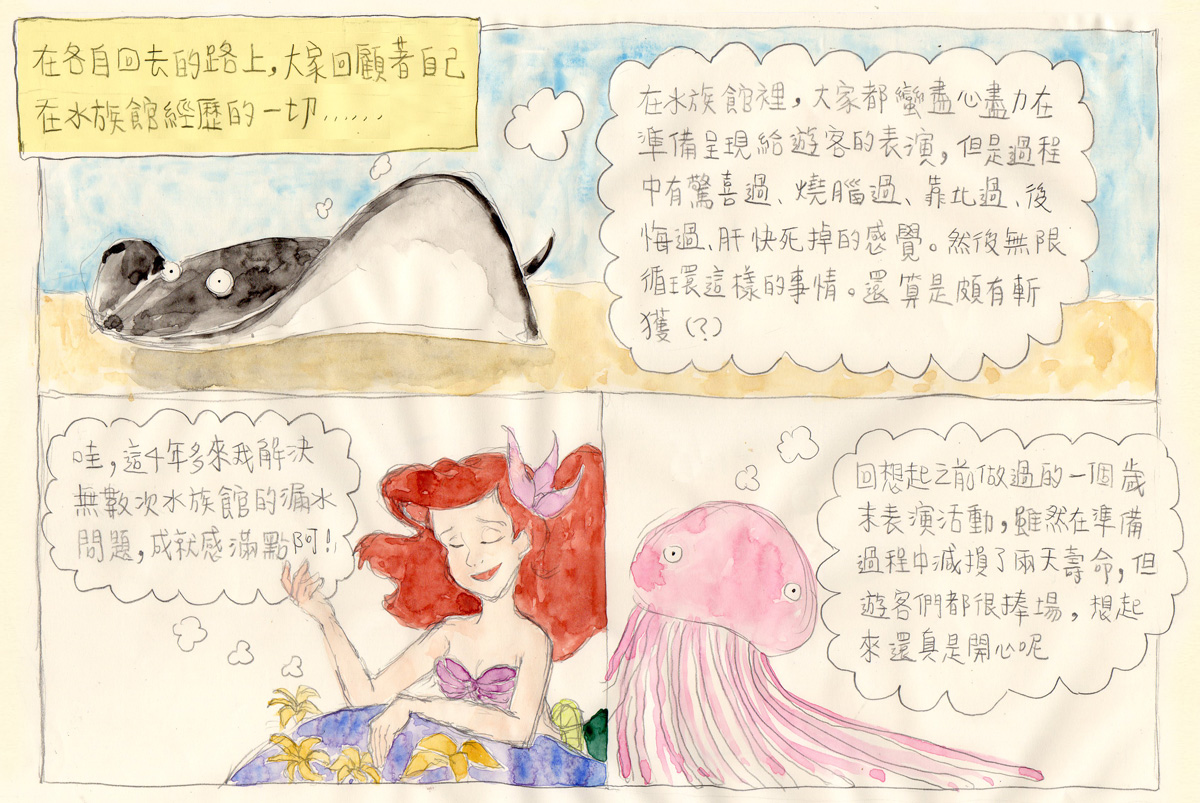 在各自回去的路上,大家回顧著自己
在水族館經歷的一切......
在水族館裡,大家都蠻盡心盡力在
準備呈現給遊客的表演,但是過程
中有驚喜過、燒腦過、靠北過、後
悔過、肝快死掉的感覺。然後無限
循環這樣的事情。還算是頗有斬
獲(?)
哇,這4年多來我解決
無數次水族館的漏水
問題,成就感滿點阿!!
回想起之前做過的一個歲
末表演活動,雖然在準備
過程中減損了兩天壽命,但
遊客們都很捧場,想起
來還真是開心呢